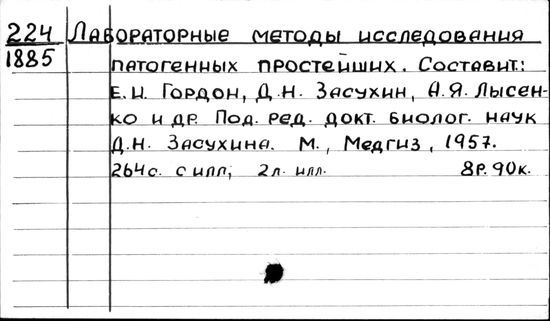 224 Лабораторные методы исследования
1885 патогенных простейших. Составит.:
Е.И. Гордон, Д.Н. Засухин, А.Я. Лысен-
ко и др. Под. ред. докт. биолог. наук
Д.Н. Засухина. М., Медгиз, 1957.
264с. с илл; 2л. илл. 8р. 90к.